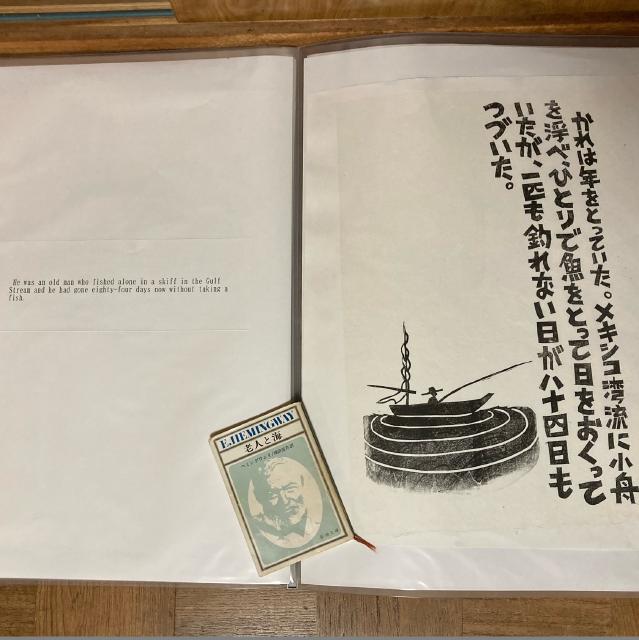 He was an old man who fished alone in a skiff in the Gulf
Stream and he had gone eighty-four days now without taking a
fish.
かれは年をとっていた。メキシコ湾流に小舟
を浮べ、ひとりで魚をとって日をおくって
いたが、一匹も釣れない日が八十四日も
つづいた。
E.HEMINGWAY
老人と海
ヘミングウェイ/福田恆存訳
新潮文庫